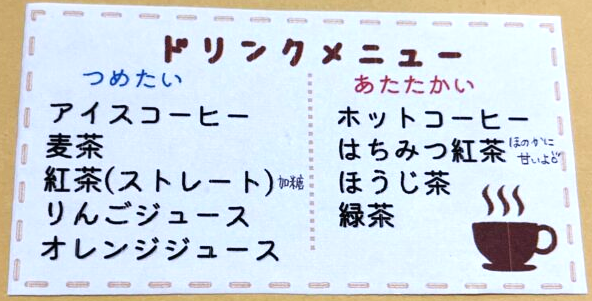 ドリンクメニュー
つめたい
アイスコーヒー
麦茶
紅茶(ストレート)加糖
りんごジュース
オレンジジュース
あたたかい
ホットコーヒー
はちみつ紅茶 ほのかに
甘いよ♪
ほうじ茶
緑茶